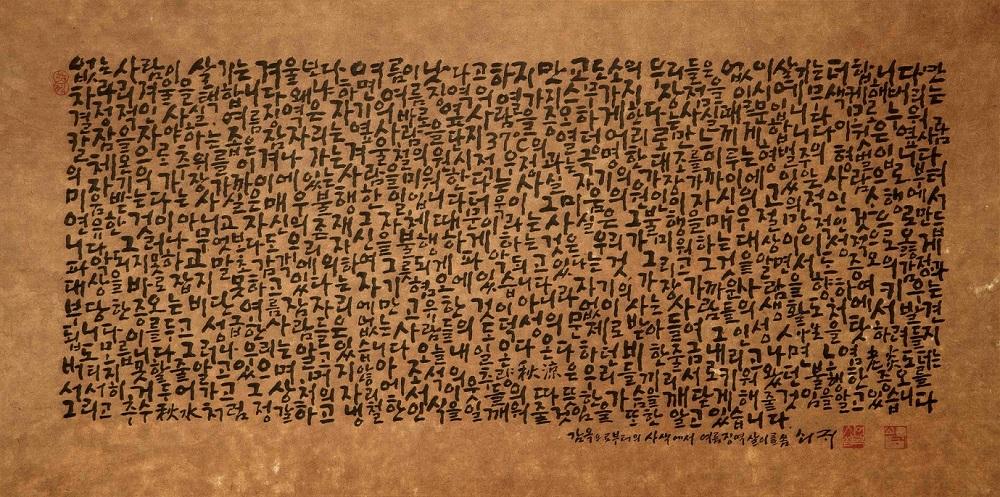 없는 사람이 살기는 겨울보다는 여름이 낫다고 하지만 교도소의 우리들은 없이 살기는 더합니다만
차라리 겨울을 택합니다 왜냐하면 여름징역의 열가지 스무가지 장점을 일시에 무색케 해버리는
결정적인 사실 여름징역은 자기의 바로 옆사람을 증오하게 한다는 사실 때문입니다 모로 누워
칼잠을 자야 하는 좁은 잠자리는 옆사람을 단지 37℃의 열덩어리로만 느끼게 합니다 이것은 옆사람
의 체온으로 추위를 이겨나가는 겨울철의 원시적 우정과는 극명한 대조를 이루는 형벌중의 형벌입니다
자기의 가장 가까이에 있는 사람을 미워한다는 사실 자기의 가장 가까이에 있는 사람으로부터
미움 받는다는 사실은 매우 불행한 일입니다 더욱이 그 미움의 원인이 자신의 고의적인 소행에서
연유한 것이 아니고 자신의 존재 그 자체 때문이라는 사실은 그 불행을 매우 절망적인 것으로 만듭
니다 그러나 무엇보다도 우리 자신을 불행하게 하는 것은 우리가 미워하는 대상이 이성적으로 옳게
파악되지 못하고 말초감각에 의하여 그릇되게 파악되고 있다는 것 그리고 그것을 알면서도 증오의 감정과
대상을 바로잡지 못하고 있다는 자기혐오에 있습니다 자기의 가장 가까운 사람을 향하여 키우는
부당한 증오는 비단 여름 잠자리에만 고유한 것이 아니라 없이 사는 사람들의 생활 도처에서 발견
됩니다 이를 두고 성급한 사람들은 없는 사람들의 도덕성의 문제로 받아들여 그 인성을 탓하려 들지
도 모릅니다 그러나 우리는 알고 있습니다 오늘 내일 온다 온다 하던 비 한줄금 내리고 나면 노염老炎도 더는
버티지 못할 줄 알고 있으며 머지않아 조석의 추량秋凉은 우리들끼리 서로 키워왔던 불행한 증오를
서서히 거두어가고 그 상처의 자리에서 이웃들의 따뜻한 가슴을 깨닫게 해줄 것임을 알고 있습니다
그리고 추수秋水처럼 정갈하고 냉철한 인식을 일깨워줄 것임을 또한 알고 있습니다
감옥으로부터의 사색에서 여름징역살이를 씀 쇠귀